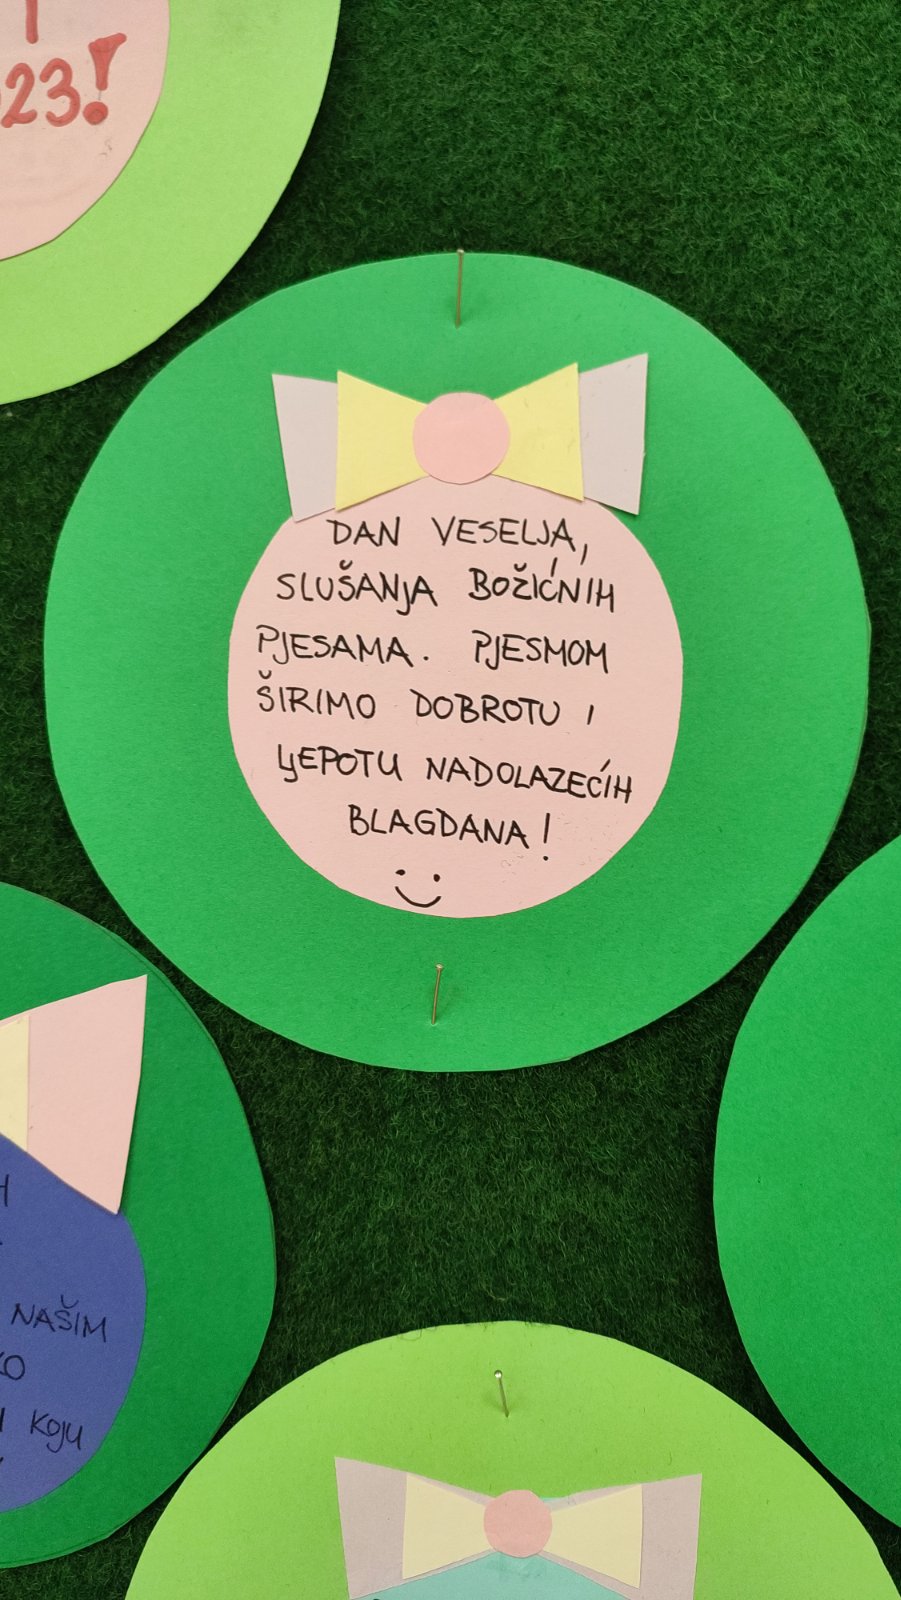 23!
DAN VESELJA,
SLUŠANJA BOŽIĆNIH
PJESAMA. PJESMOM
ŠIRIMO DOBROTU I
LJEPOTU NADOLAZEĆIH
BLAGDANA!
NAŠIM
KOJU